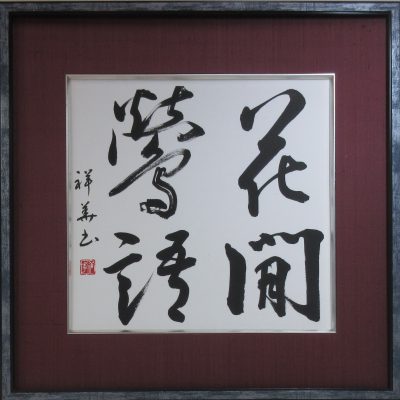 花間
鶯語
祥華書